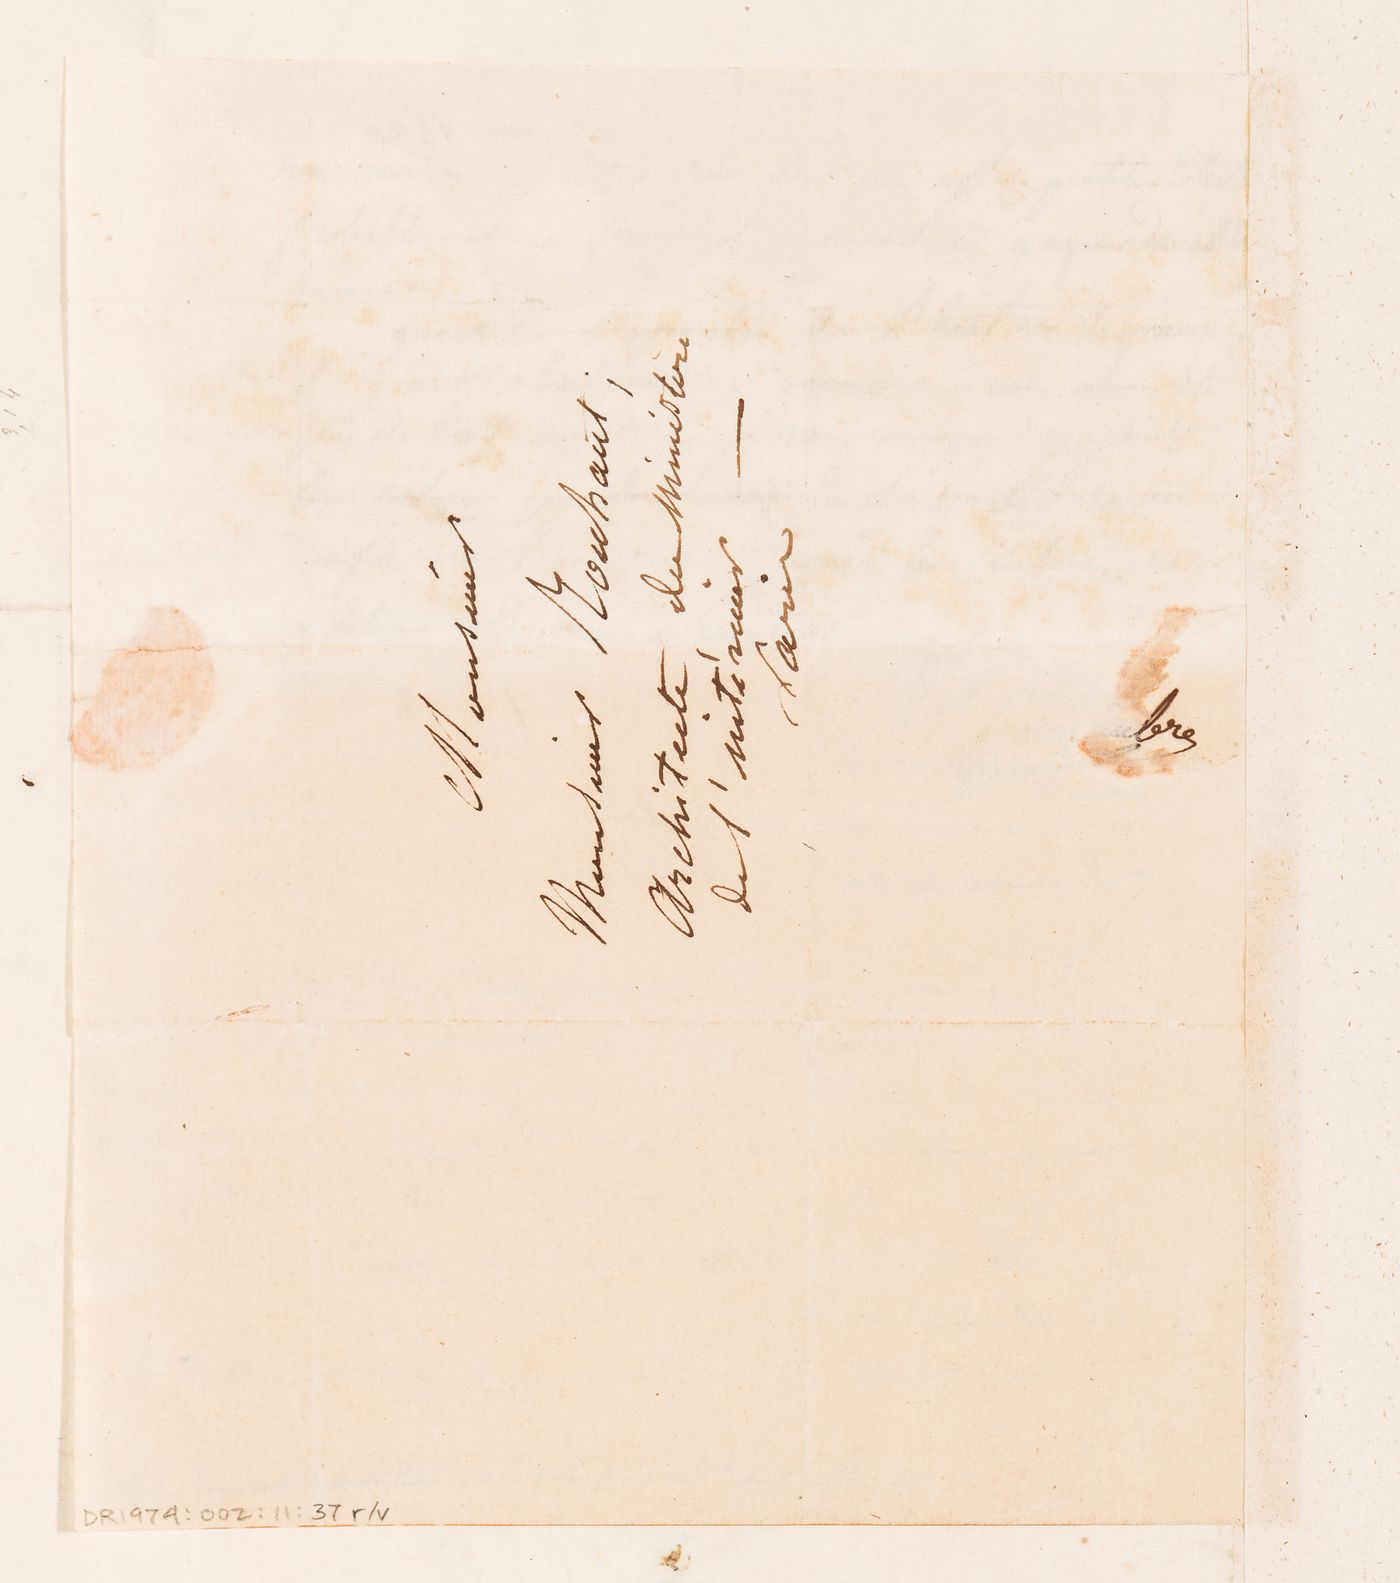 Monsieur
Monsieur Rouhaut,
Architecte du Ministere
de l'intérieur —
Paris
bre
DR1974:002:11:37 r/v